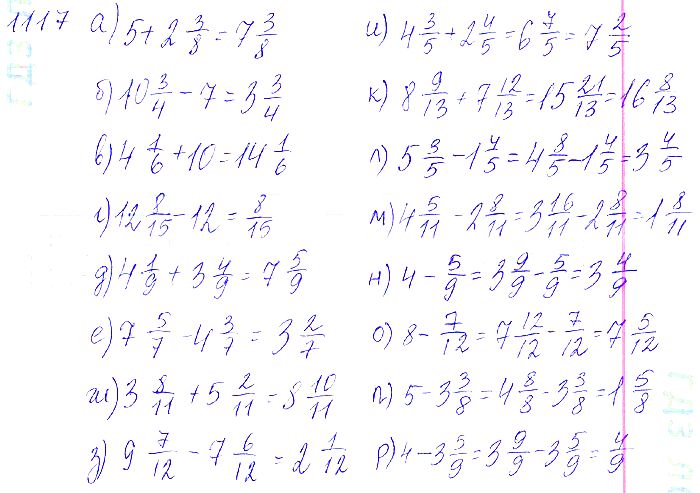 1117 а) 5 + 2 3/8 = 7 3/8
б) 10 3/4 - 7 = 3 3/4
в) 4 1/6 + 10 = 14 1/6
г) 12 8/15 - 12 = 8/15
д) 4 1/9 + 3 4/9 = 7 5/9
е) 7 5/7 - 4 3/7 = 3 2/7
ж) 3 8/11 + 5 2/11 = 8 10/11
з) 9 7/12 - 7 6/12 = 2 1/12
и) 4 3/5 + 2 4/5 = 6 7/5 = 7 2/5
к) 8 9/13 + 7 12/13 = 15 21/13 = 16 8/13
л) 5 3/5 - 1 4/5 = 4 8/5 - 1 4/5 = 3 4/5
м) 4 5/11 - 2 8/11 = 3 16/11 - 2 8/11 = 1 8/11
н) 4 - 5/9 = 3 9/9 - 5/9 = 3 4/9
о) 8 - 7/12 = 7 12/12 - 7/12 = 7 5/12
п) 5 - 3 3/8 = 4 8/8 - 3 3/8 = 1 5/8
р) 4 - 3 5/9 = 3 9/9 - 3 5/9 = 4/9